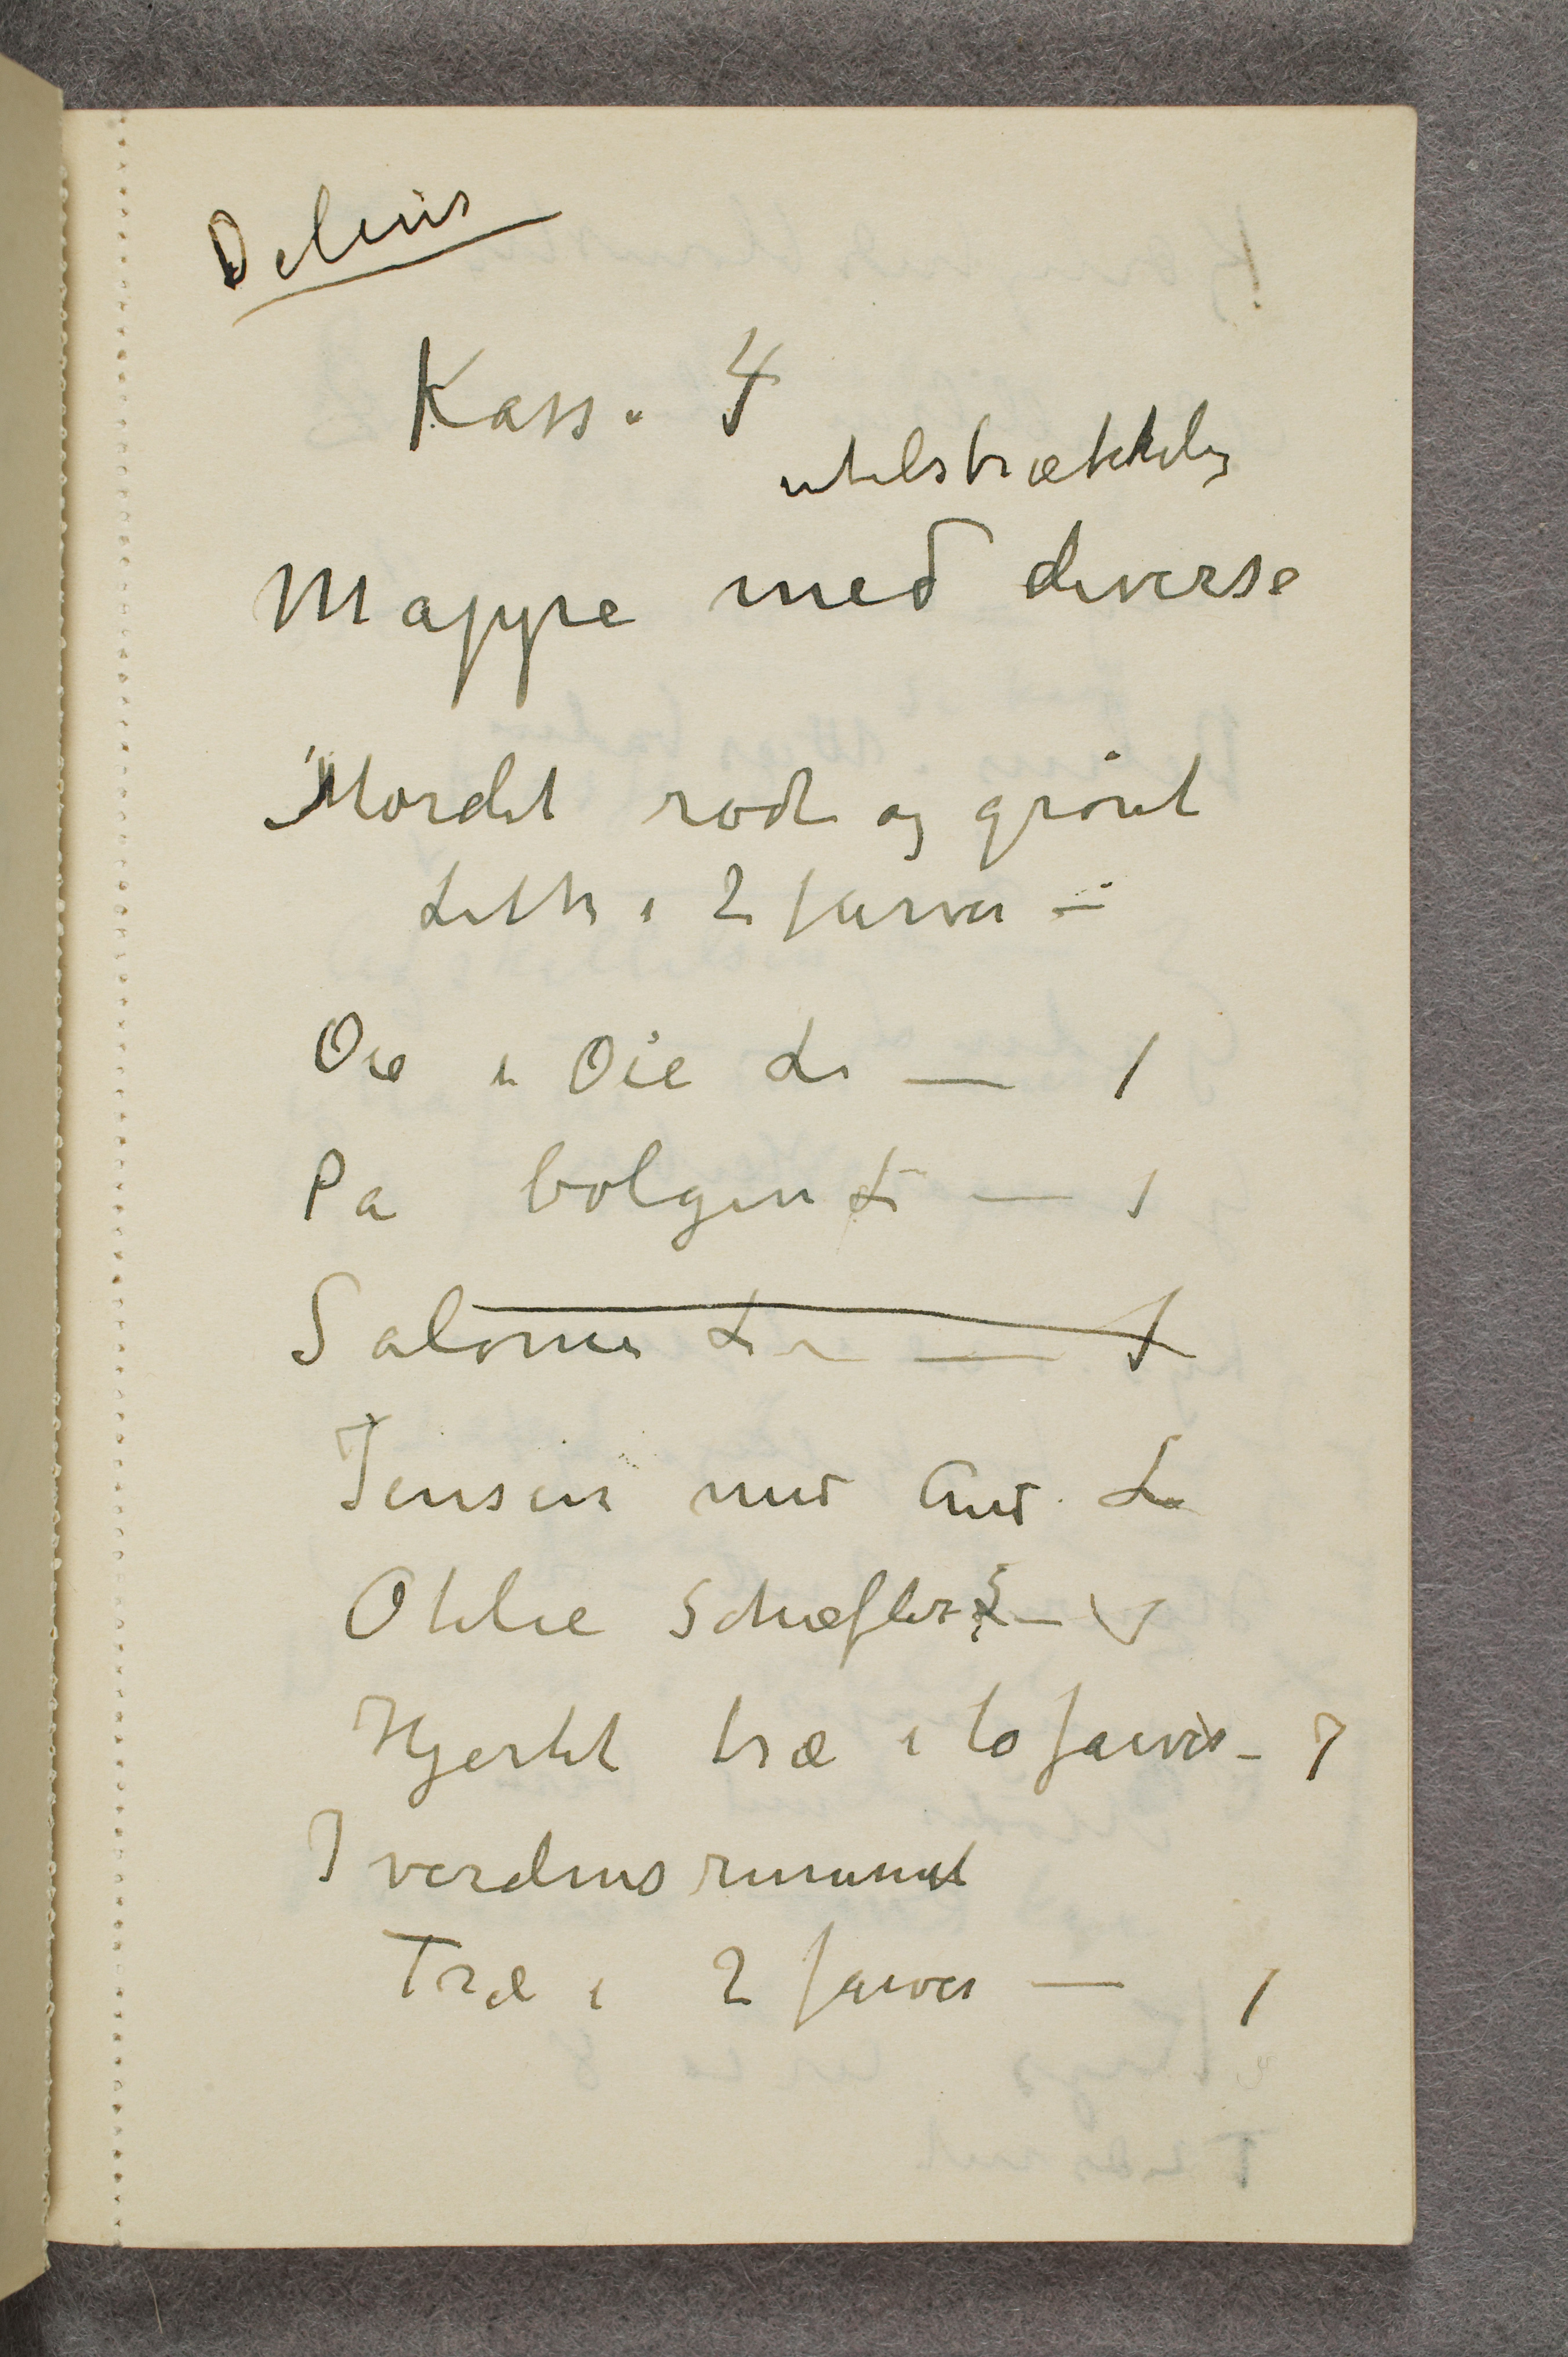 Delius
Kass. 4
utilstrækkelig
Mappe med diverse
Mordet rødt og grønt
Lith i 2 farver –
Oie i Oie Li — 1
På bølgen Li — 1
Salome Li — 1
Jensen med And Li
Otilie Schæfler L – V
Hjertet træ i to farver – 7
I verdensrummet
Træ i 2 farver — 1